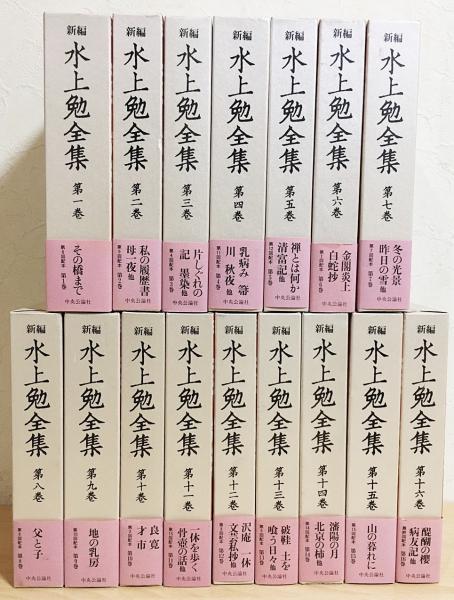 新編 水上勉全集 第一巻
その橋まで
中央公論社
新編 水上勉全集 第二巻
私の履歴書
母一夜 他
新編 水上勉全集 第三巻
片しぐれの
記 墨染 他
新編 水上勉全集 第四巻
乳病み 箒
川 秋夜 他
新編 水上勉全集 第五巻
禅とは何か
清富記 他
新編 水上勉全集 第六巻
金閣炎上
白蛇抄
新編 水上勉全集 第七巻
冬の光景
昨日の雪 他
中央公論社
新編 水上勉全集 第八巻
父と子
中央公論社
新編 水上勉全集 第九巻
地の乳房
新編 水上勉全集 第十巻
良寛
才市
新編 水上勉全集 第十一巻
一休を歩く
骨壺の話 他
新編 水上勉全集 第十二巻
沢庵 一休
文芸私抄 他
新編 水上勉全集 第十三巻
破鞋 土を
喰う日々 他
新編 水上勉全集 第十四巻
瀋陽の月
北京の柿 他
新編 水上勉全集 第十五巻
山の暮れに
新編 水上勉全集 第十六巻
醍醐の櫻
病友記 他
中央公論社